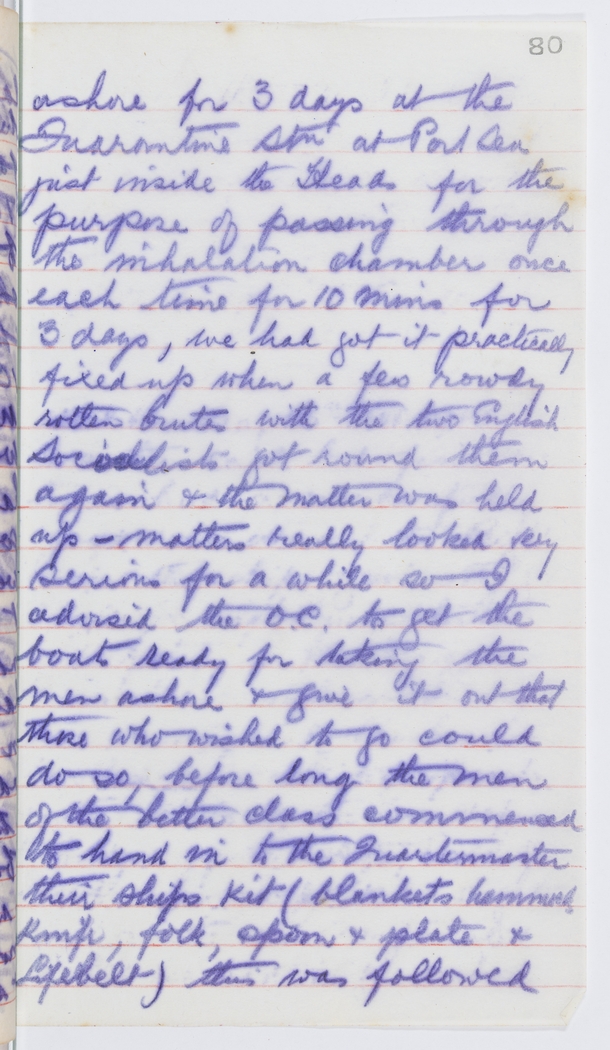 80
ashore for 3 days at the
Quarantine Stn at Port Sea
just inside the Heads for the
purpose of passing through
the inhalation chamber once
each time for 10 mins for
3 days, we had got it practically
fixed up when a few rowdy
rotten brutes with the two English
Socialists got round them
again & the matter was held
up - matters really looked very
serious for a while so I
advised the O.C. to get the
boats ready for taking the
men ashore & give it out that
those who wished to go could
do so, before long the men
of the better class commenced
to hand in to the Quartermaster
their ships kit (blankets hammock
Knife, folk, spoon & plate &
Lifebelt) this was followed